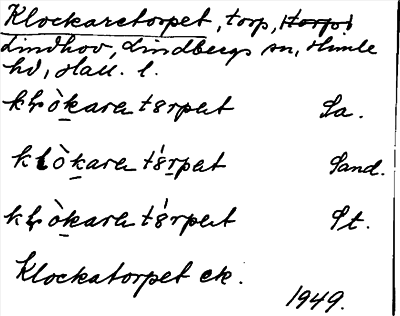 Klockaretorpet, torp,
Lindhov, Lindbergs sn, Himle
hd, Hall. l.
klòkare tɞrpet Sa.
klòkare tɞ́rpet Sand.
klòkare tɞ́rpet St.
Klockatorpet ek.
1949.